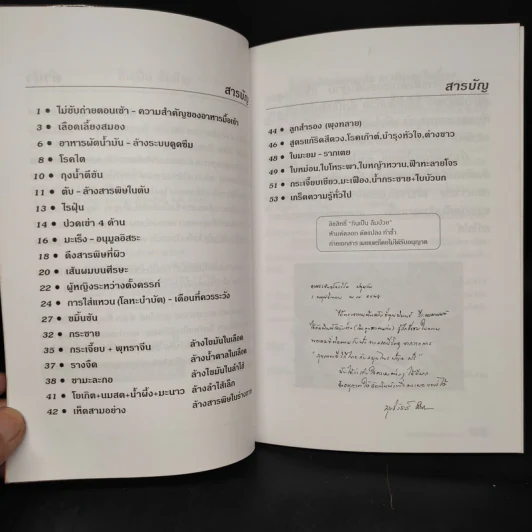 สารบัญ
1 • ไม่ขับถ่ายตอนเช้า - ความสำคัญของอาหารมื้อเช้า
3 • เลือดเลี้ยงสมอง
6 • อาหารผัดน้ำมัน - ล้างระบบดูดซึม
8 • โรคไต
10 • ถุงน้ำดีข้น
11 • ตับ - ล้างสารพิษในตับ
13 • ไรฝุ่น
14 • ปวดเข่า 4 ด้าน
16 • มะเร็ง - อนุมูลอิสระ
18 • ดึงสารพิษที่ผิว
20 • เส้นผมบนศีรษะ
22 • ผู้หญิงระหว่างตั้งครรภ์
24 • การใส่แหวน (โลหะบำบัด) - เดือนที่ควรระวัง
27 • ขมิ้นชัน
32 • กระชาย
35 • กระเจี๊ยบ + พุทราจีน ล้างไขมันในเลือด
37 • รางจืด ล้างน้ำตาลในเลือด
38 • ชามะละกอ ล้างไขมันในลำไส้
41 • โยเกิต+นมสด+น้ำผึ้ง+มะนาว ล้างลำไส้เล็ก
42 • เห็ดสามอย่าง ล้างสารพิษในร่างกาย
สารบัญ
44 • ลูกสำรอง (พุงทลาย)
46 • สูตรแก้ริดสีดวง,โรคเก๊าต์,บำรุงหัวใจ,ต่างขาว
48 • ใบมะยม - รากเตย
49 • ใบหม่อน,ใบโหระพา,ใบหญ้าหวาน,ฟ้าทะลายโจร
51 • กระเจี๊ยบเขียว,มะเฟือง,น้ำกระชาย+ใบบัวบก
53 • เกร็ดความรู้ทั่วไป
ลิขสิทธิ์ "กินเป็น ลืมป่วย"
ห้ามคัดลอก ดัดแปลง ทำซ้ำ
ถ่ายเอกสาร เผยแพร่โดยไม่ได้รับอนุญาต